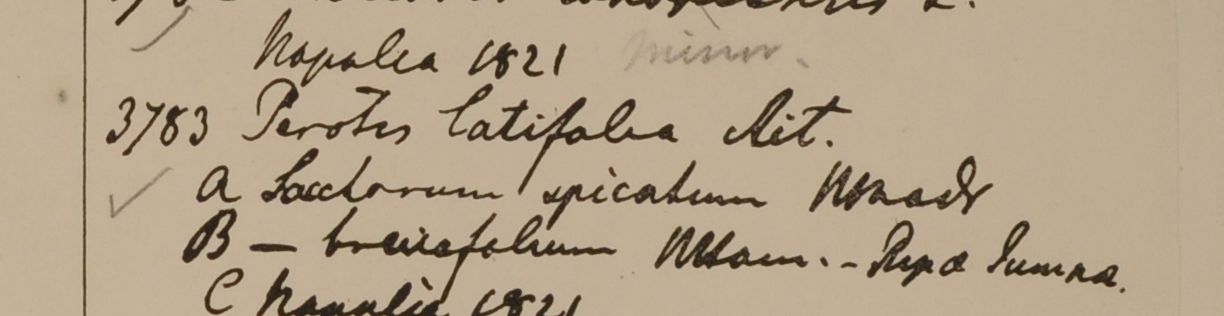 Napalia 1821 minor.
3783 Perotis latifolia Ait.
A Saccharum spicatum HMadr
B — brevifolium HHam. - Ripa Jumna.
C Napalia 1821